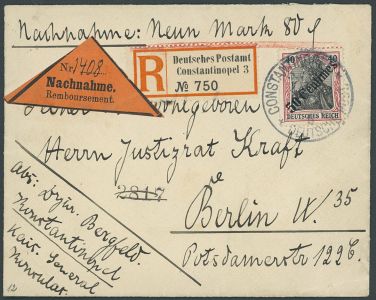 Nachnahme: Neun Mark 80 ₰
Nr. 1408
Nachnahme.
Remboursement.
R
Deutsches Postamt
Constantinopel 3
№ 750
50 Centimes
DEUTSCHES REICH
CONSTANTINOPEL
Hochgeboren
Herrn Justizrat Kraft
2817
Berlin W. 35
Potsdamerstr 122c.
Abs: Bergfeld.
Konstantinopel
Kais. General
Konsulat.
12